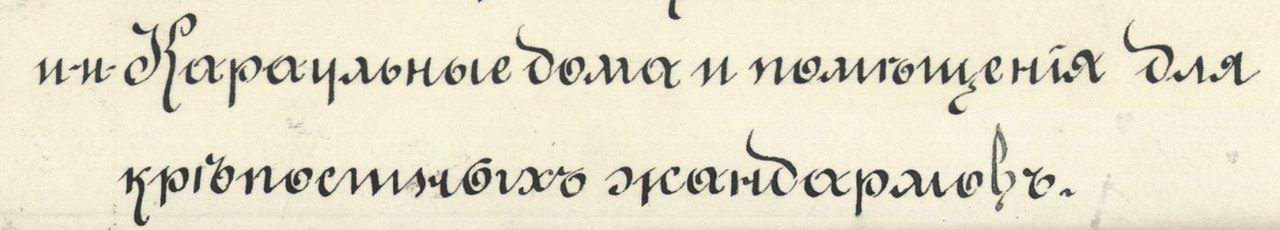 и-и- Караульные дома и помѣщенія для
крѣпостныхъ жандармовъ.